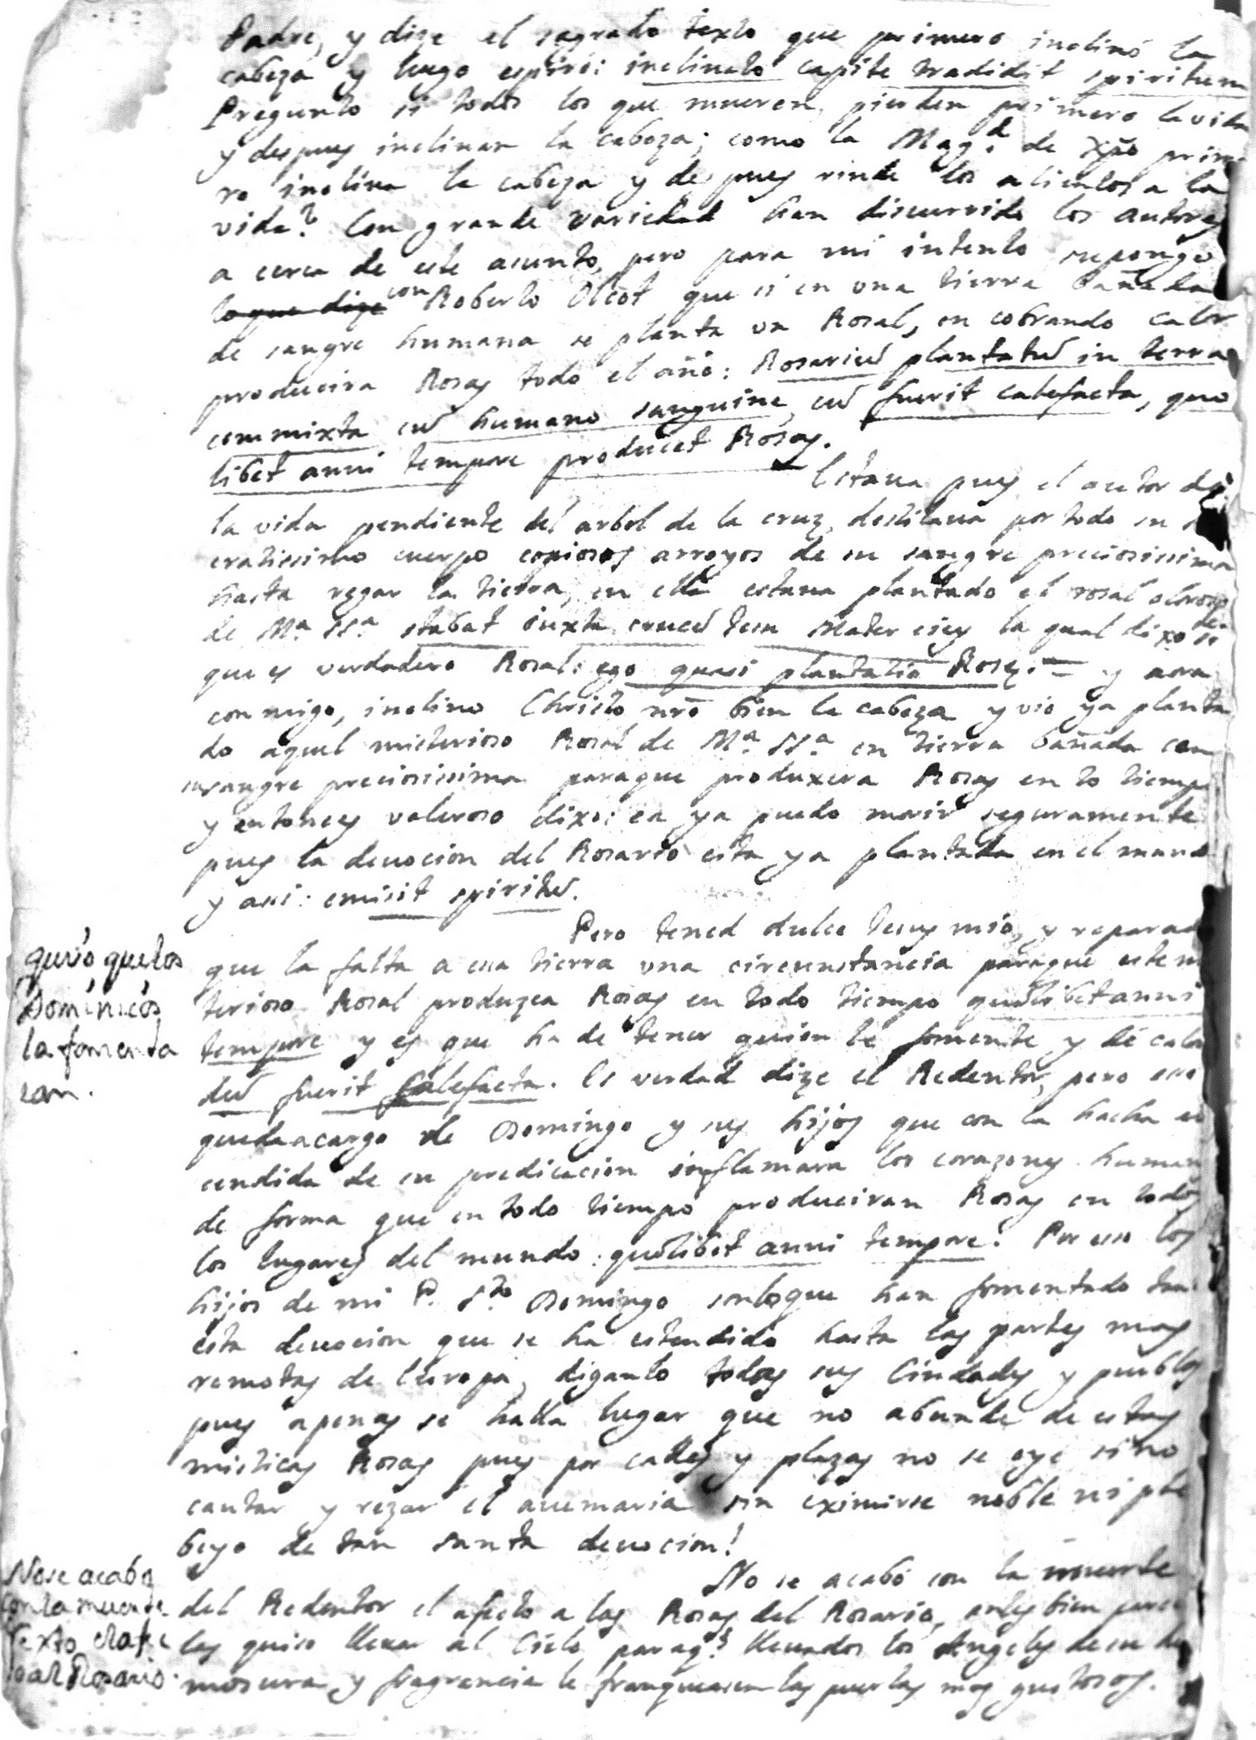 Padre, y dize el sagrado texto que primero inclinó la
cabeza y luego espiró: inclinato capite tradidit spiritum
Pregunto si todos los que mueren, pierden primero la vida
y despues inclinan la cabeza; como la Mag.d de Xpõ prime
ro inclina la cabeza y despues rinde los alientos a la
vida? Con grande variedad han discurrido los autores
a cerca de este asunto, pero para mi intento supongo
lo que dize con Roberto Olcot que si en una tierra bañada
de sangre humana se planta un Rosal, en cobrando calor
producira Rosas todo el año: Rosariũ plantatũ in terra
commixta cũ humano sanguine, cũ fuerit calefacta, quo
libet anni tempore producet Rosas.
Estaua pues el autor de
la vida pendiente del arbol de la cruz, destilaua por todo su sa
cratissimo cuerpo copiosos arroyos de su sangre preciosissima
hasta regar la tierra, en ella estaua plantado el rosal oloroso
de M.a SS.a stabat iuxta crucẽ Jesu Mater eius la qual dixo de si
que es verdadero Rosal: ego quasi plantatio Rosę. = y aora
conmigo, inclino Christo nrõ bien la cabeza y vio ya planta
do aquel misterioso Rosal de M.a SS.a en tierra bañada con
su sangre preciosissima paraque produxera Rosas en to tiempo
y entonces valeroso dixo: ea ya puedo morir seguramente
pues la deuocion del Rosario esta ya plantada en el mundo
y asi: emisit spiritũ.
Pero tened dulce Jesus mio, y reparad
que la falta a esa tierra una circunstancia paraque este mis
terioso Rosal produzca Rosas en todo tiempo quolibet anni
tempore y es que ha de tener quien le fomente y dé calor
dũ fuerit calefacta. Es verdad dize el Redentor, pero eso
queda a cargo de Domingo y sus hijos que con la hacha en
cendida de su predicacion inflamara los corazones humanos
de forma que en todo tiempo produciran Rosas en todos
los lugares del mundo: quolibet anni tempore. Por eso los
hijos de mi P. S.to Domingo son los que han fomentado tan
esta deuocion que se ha estendido hasta las partes mas
remotas de Europa, diganlo todas sus Ciudades y pueblos
pues apenas se halla lugar que no abunde de estas
misticas Rosas pues por calles y plazas no se oye sino
cantar y rezar el auemaria sin eximirse noble ni ple
beyo de tan santa deuocion!
No se acabó con la muerte
del Redentor el afecto a las Rosas del Rosario, antes bien
las quiso lleuar al Cielo, paraq.e lleuados los Angeles de su her
mosura y fragrancia le franqueasen las puertas mas gustosos.
quiso que los
Dominicos
la fomenta
ran.
No se acabo
con la muerte
de Xpto, el afec
to al Rosario.